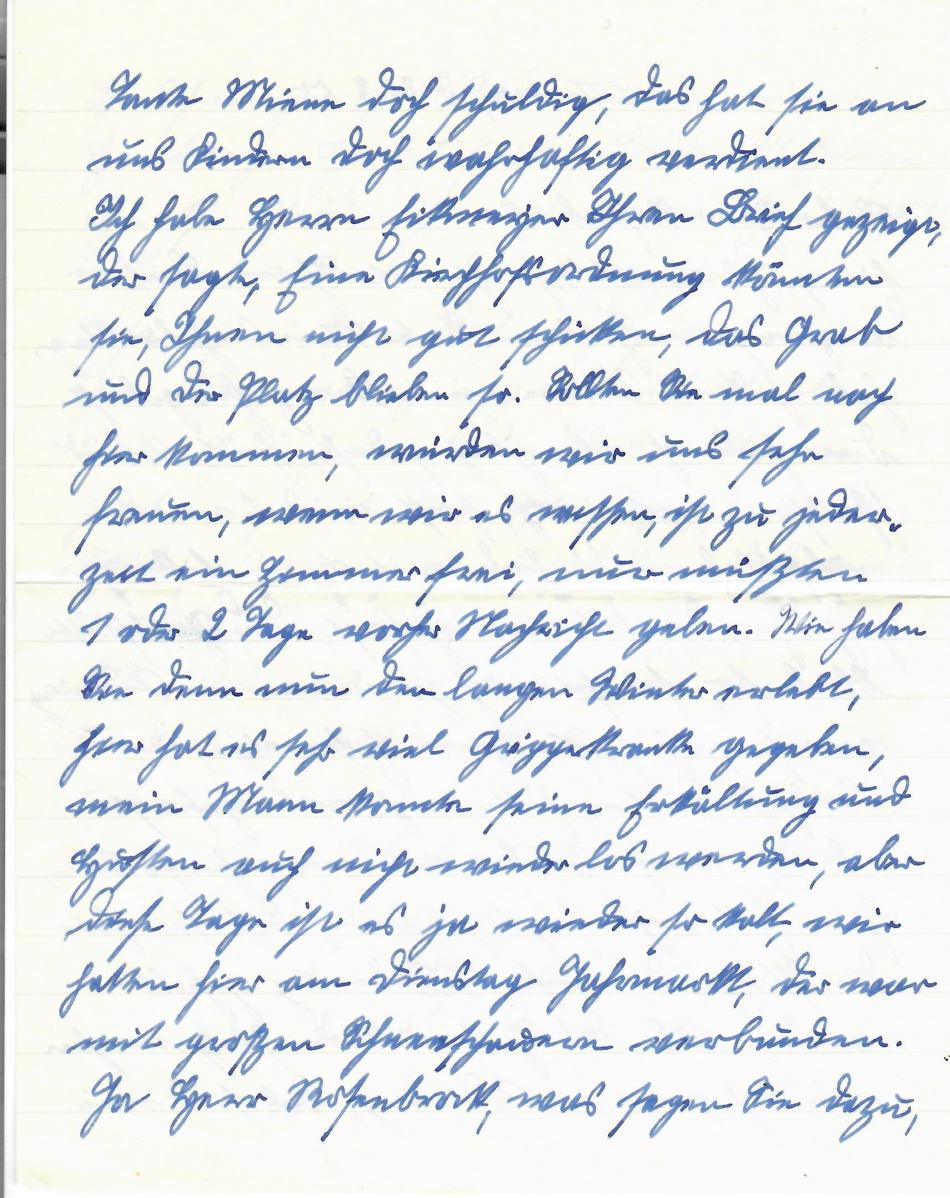 Tante Miene doch schuldig, das hat sie an
uns Kindern doch wahrhaftig verdient.
Ich habe Herrn Eikmeyer Ihren Brief gezeigt,
der sagte, Eine Kirchhofsordnung könnten
sie, Ihnen nicht gut schicken, das Grab
und der Platz blieben so. Sollten Sie mal nach
hier kommen, würden wir uns sehr
freuen, wenn wir es wissen, ist zu jeder-
zeit ein Zimmer frei, nur müßten
1 oder 2 Tage vorher Nachricht geben. Wie haben
Sie denn nun den langen Winter erlebt,
hier hat es sehr viel Grippekranke gegeben,
mein Mann konnte seine Erkältung und
Husten auch nicht wieder los werden, aber
diese Tage ist es ja wieder so kalt, wir
hatten hier am Dienstag Jahrmarkt, der war
mit großen Schneeschauern verbunden.
Ja Herr Rosenbrock, was sagen Sie dazu,